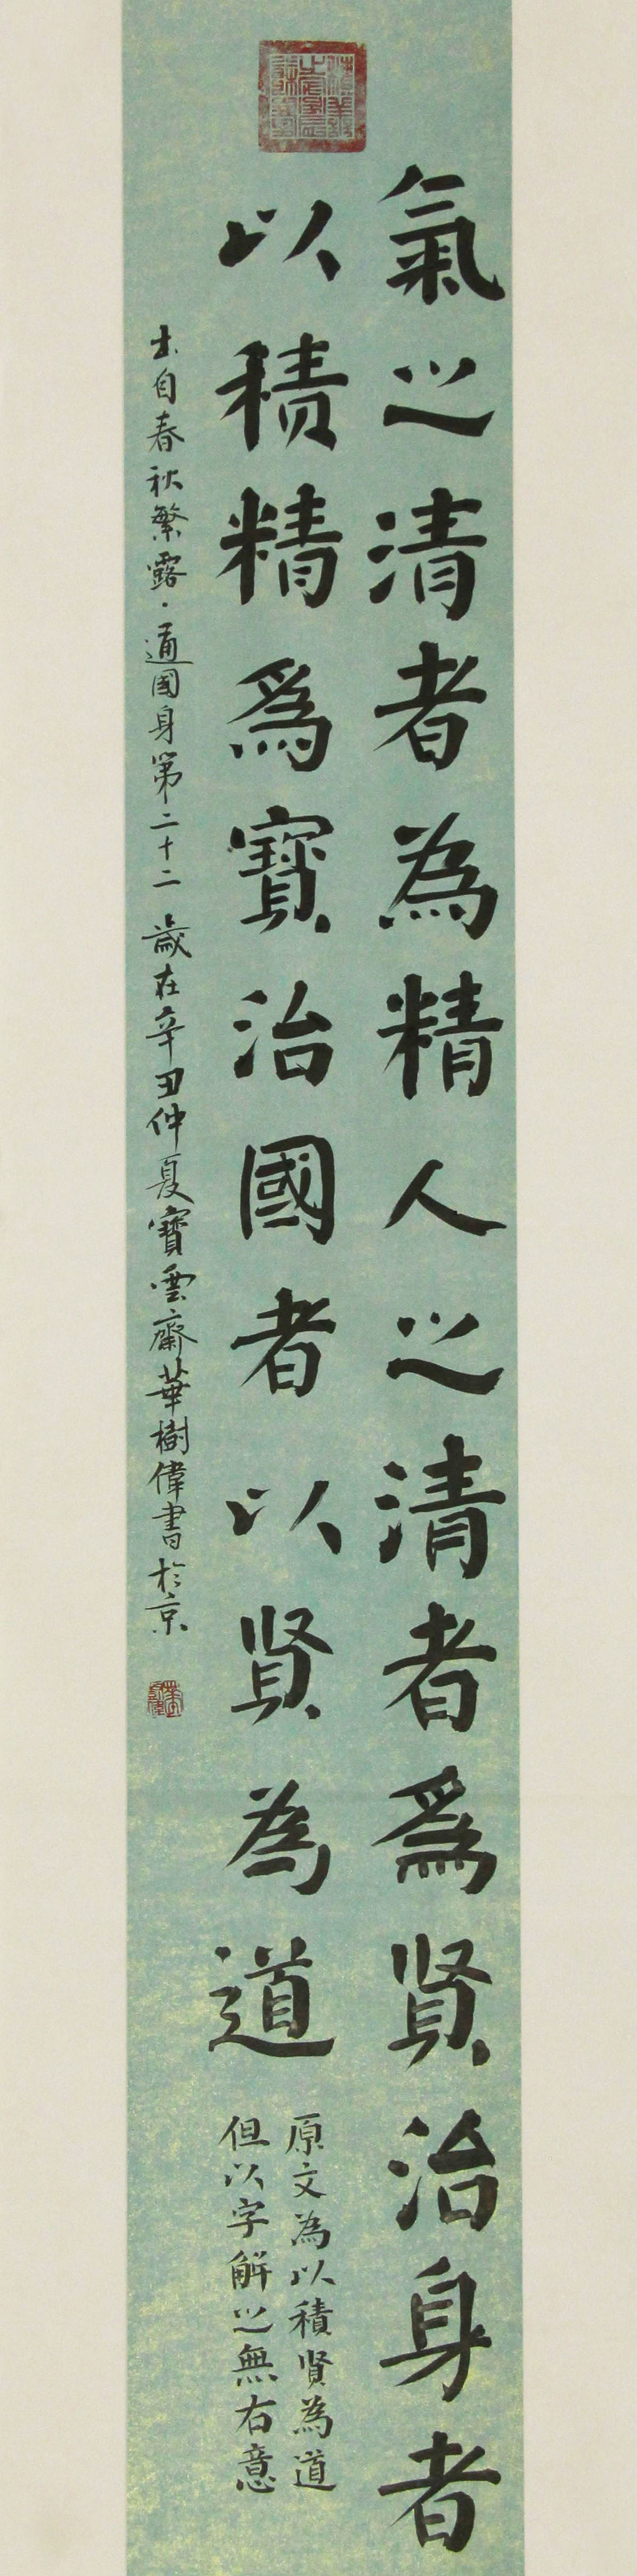 氣之清者為精人之清者爲賢治身者
以積精爲寶治國者以賢為道
原文為以積賢為道
但以字解之無右意
出自春秋繁露·通國身第二十二 歲在辛丑仲夏寶雲齋華樹偉書於京